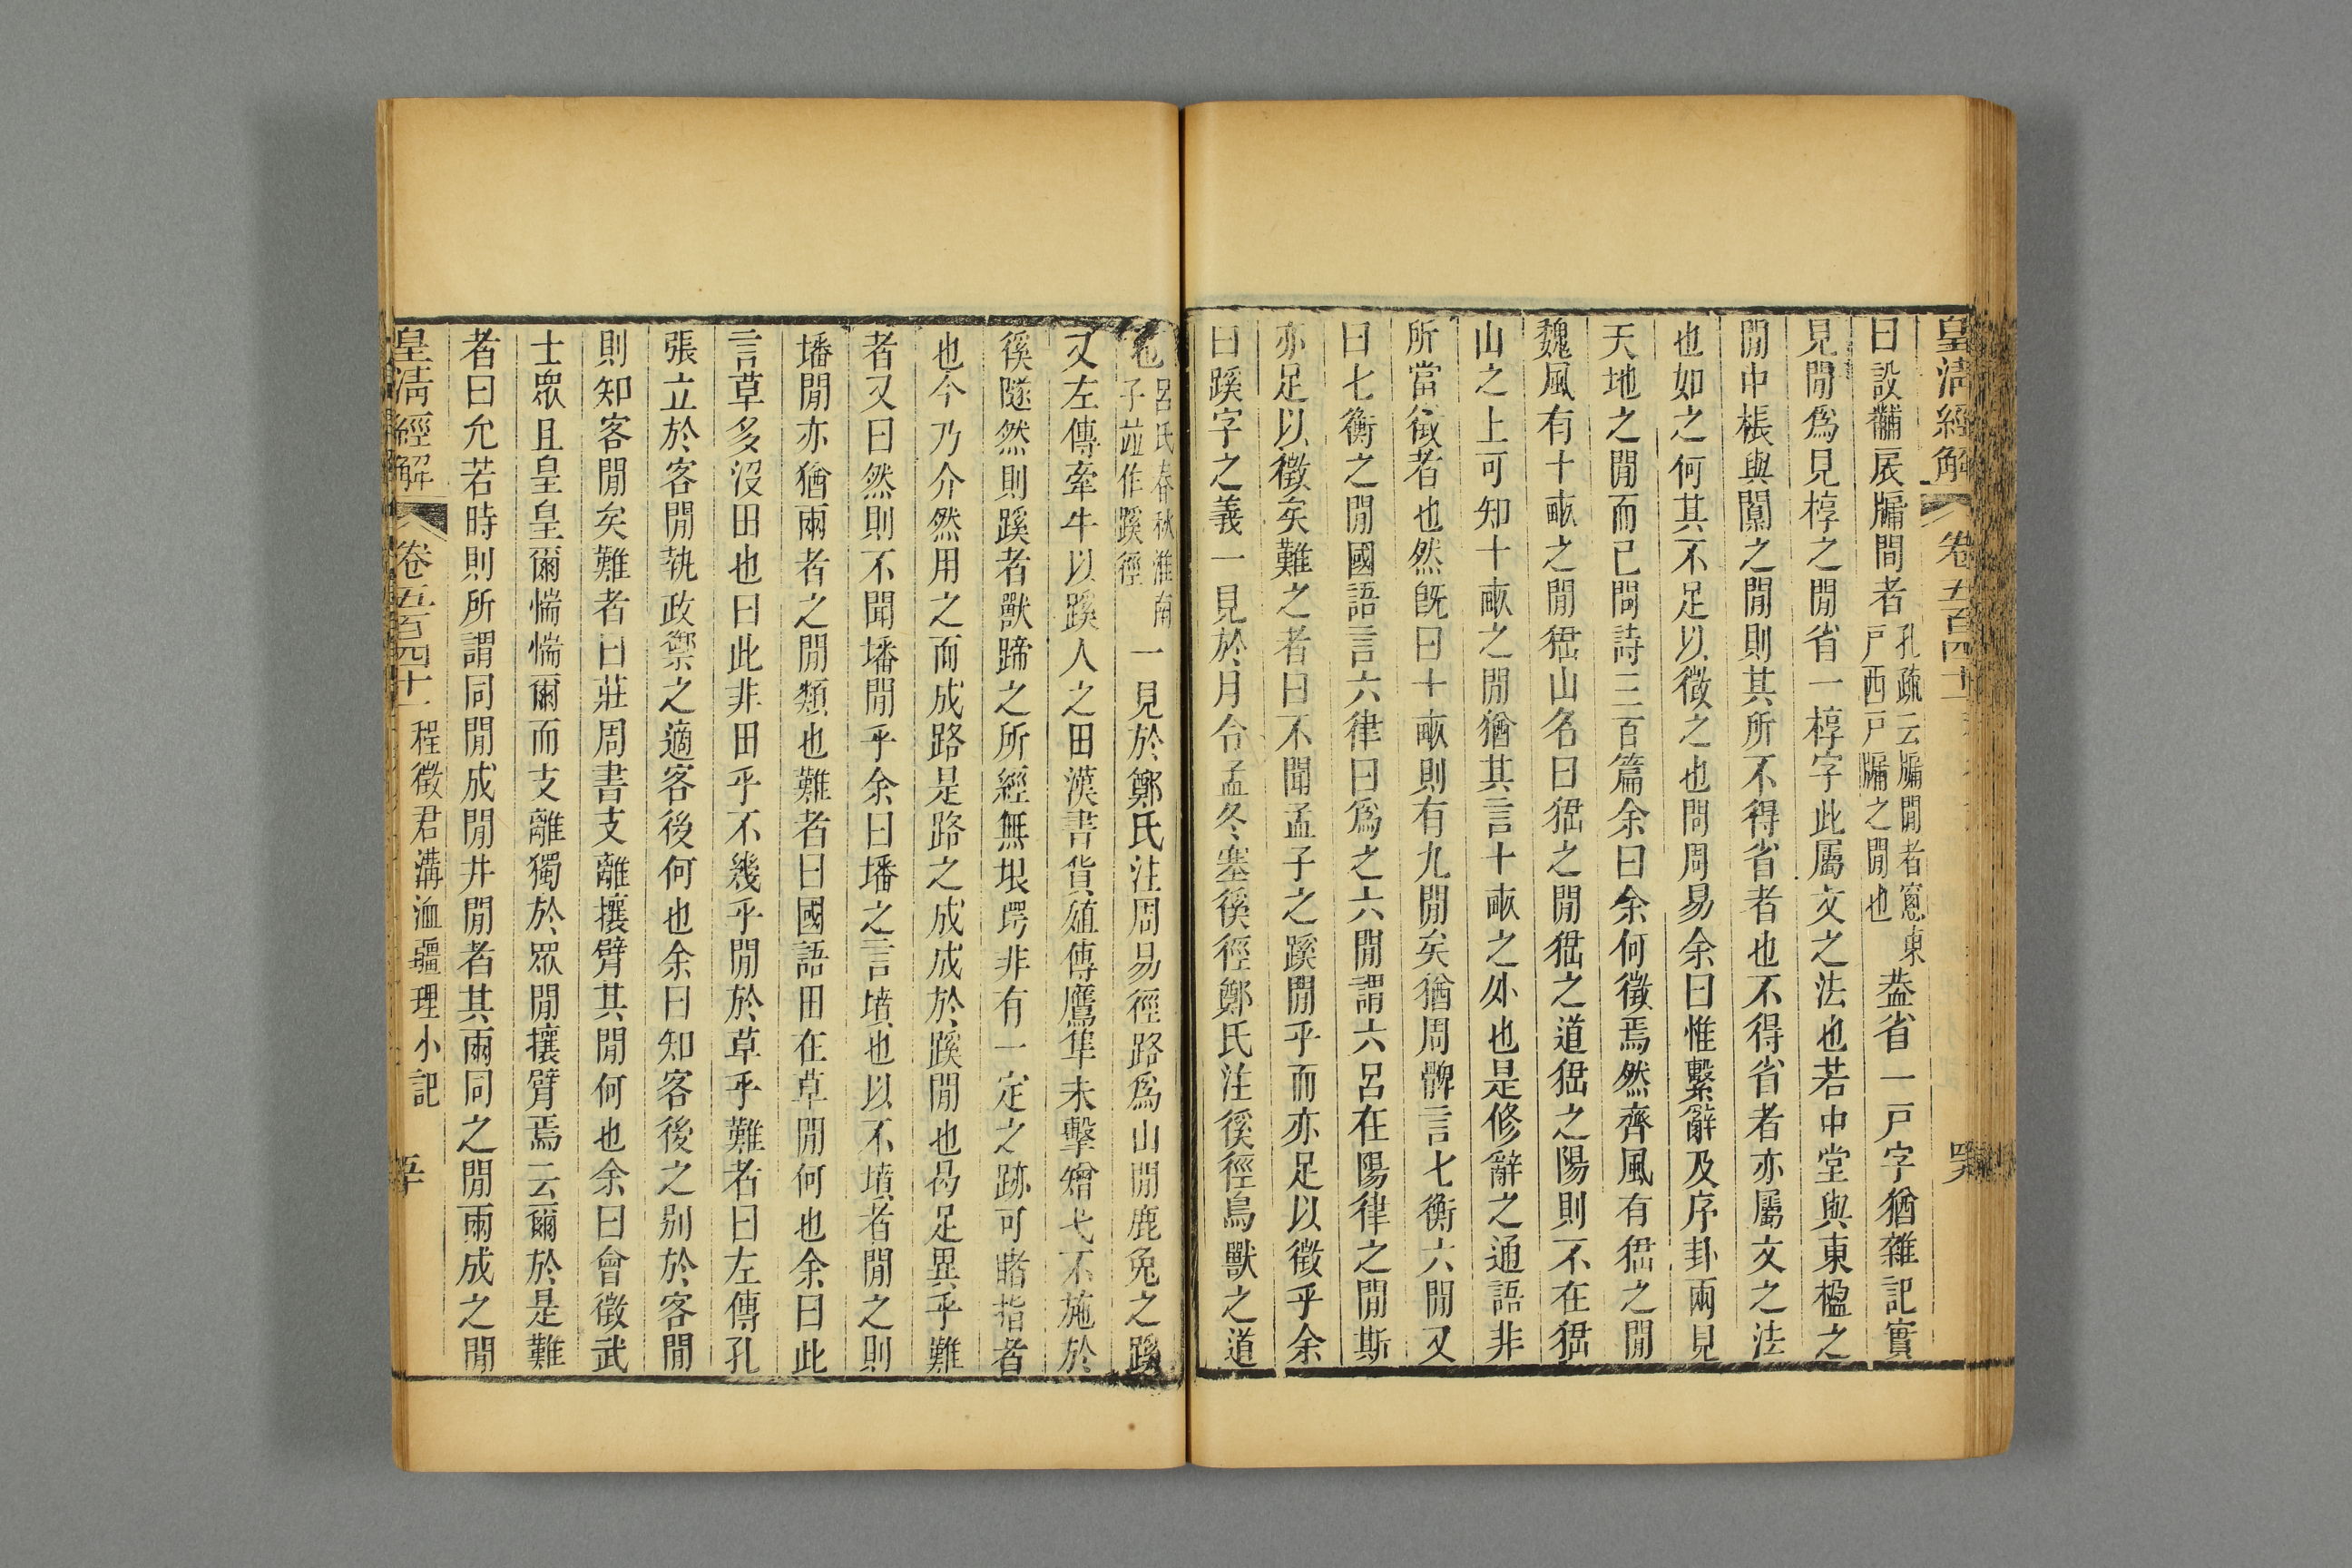 皇清經解 卷五百四十一
曰設黼扆牖間者孔疏云牖間者窻東戸西戸牖之間也葢省一戸字猶雜記實
見閒爲見椁之閒省一椁字此屬文之法也若中堂與東楹之
閒中棖與闑之閒則其所不得省者也不得省者亦屬文之法
也如之何其不足以徵之也問周易余曰惟繫辭及序卦兩見
天地之閒而已問詩三百篇余曰余何徵焉然齊風有峱之閒
魏風有十畞之閒峱山名曰峱之閒峱之道峱之陽則不在峱
山之上可知十畞之閒猶其言十畞之外也是修辭之通語非
所當徵者也然旣曰十畞則有九閒矣猶周髀言七衡六閒又
曰七衡之閒國語言六律曰爲之六閒謂六呂在陽律之閒斯
亦足以徵矣難之者曰不聞孟子之蹊閒乎而亦足以徵乎余
曰蹊字之義一見於月令孟冬塞徯徑鄭氏注徯徑鳥獸之道
也呂氏春秋淮南子竝作蹊徑一見於鄭氏注周易徑路爲山閒鹿兔之蹊
又左傳牽牛以蹊人之田漢書貨殖傳鷹隼未擊矰弋不施於
徯隧然則蹊者獸蹄之所經無垠堮非有一定之跡可睹指者
也今乃介然用之而成路是路之成成於蹊閒也曷足異乎難
者又曰然則不聞墦閒乎余曰墦之言墳也以不墳者閒之則
墦閒亦猶兩者之閒類也難者曰國語田在草閒何也余曰此
言草多沒田也曰此非田乎不幾乎閒於草乎難者曰左傳孔
張立於客閒執政禦之適客後何也余曰知客後之别於客閒
則知客閒矣難者曰莊周書支離攘臂其閒何也余曰會徵武
士眾且皇皇爾惴惴爾而支離獨於眾閒攘臂焉云爾於是難
者曰允若時則所謂同閒成閒井閒者其兩同之閒兩成之閒
皇清經解 卷五百四十一 程徵君溝洫疆理小記